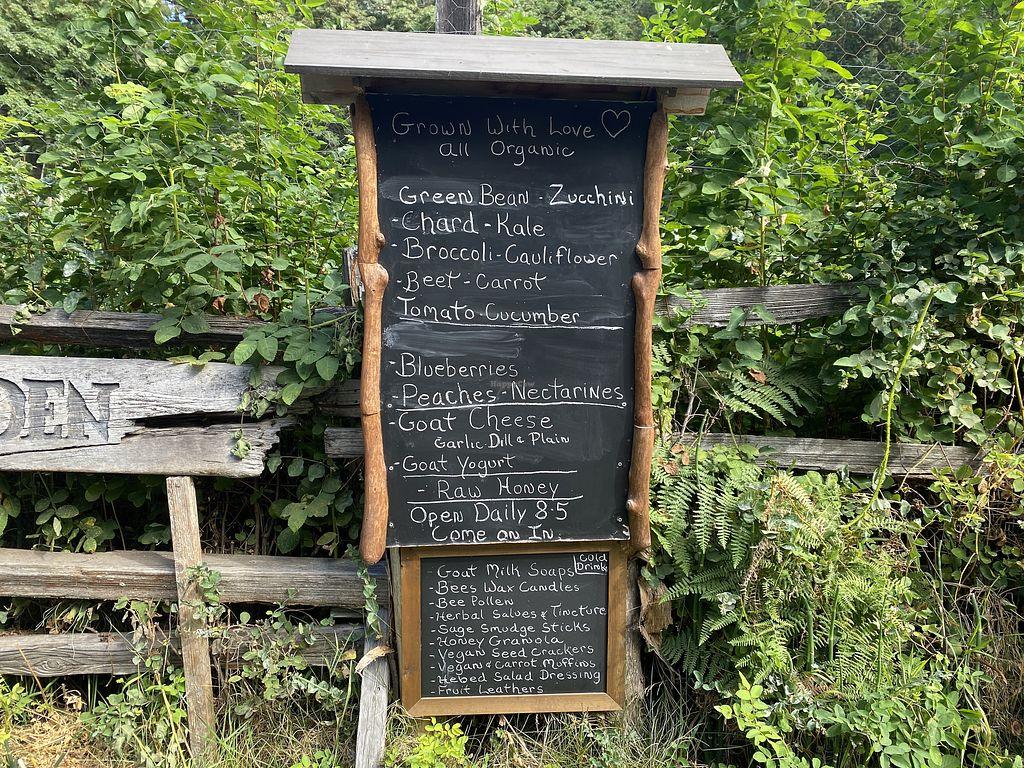 Grown With Love ♡
All Organic
Green Bean - Zucchini
- Chard - Kale
- Broccoli - Cauliflower
- Beet - Carrot
Tomato - Cucumber
- Blueberries
- Peaches - Nectarines
- Goat Cheese
Garlic Dill & Plain
- Goat Yogurt
- Raw Honey
Open Daily 8-5
Come on In
DEN
- Goat Milk Soaps
Cold
Drinks
- Bees Wax Candles
- Bee Pollen
- Herbal Salves & Tincture
- Sage Smudge Sticks
- Honey Granola
- Vegan Seed Crackers
- Vegan & Carrot Muffins
- Hebed Salad Dressing
- Fruit Leathers